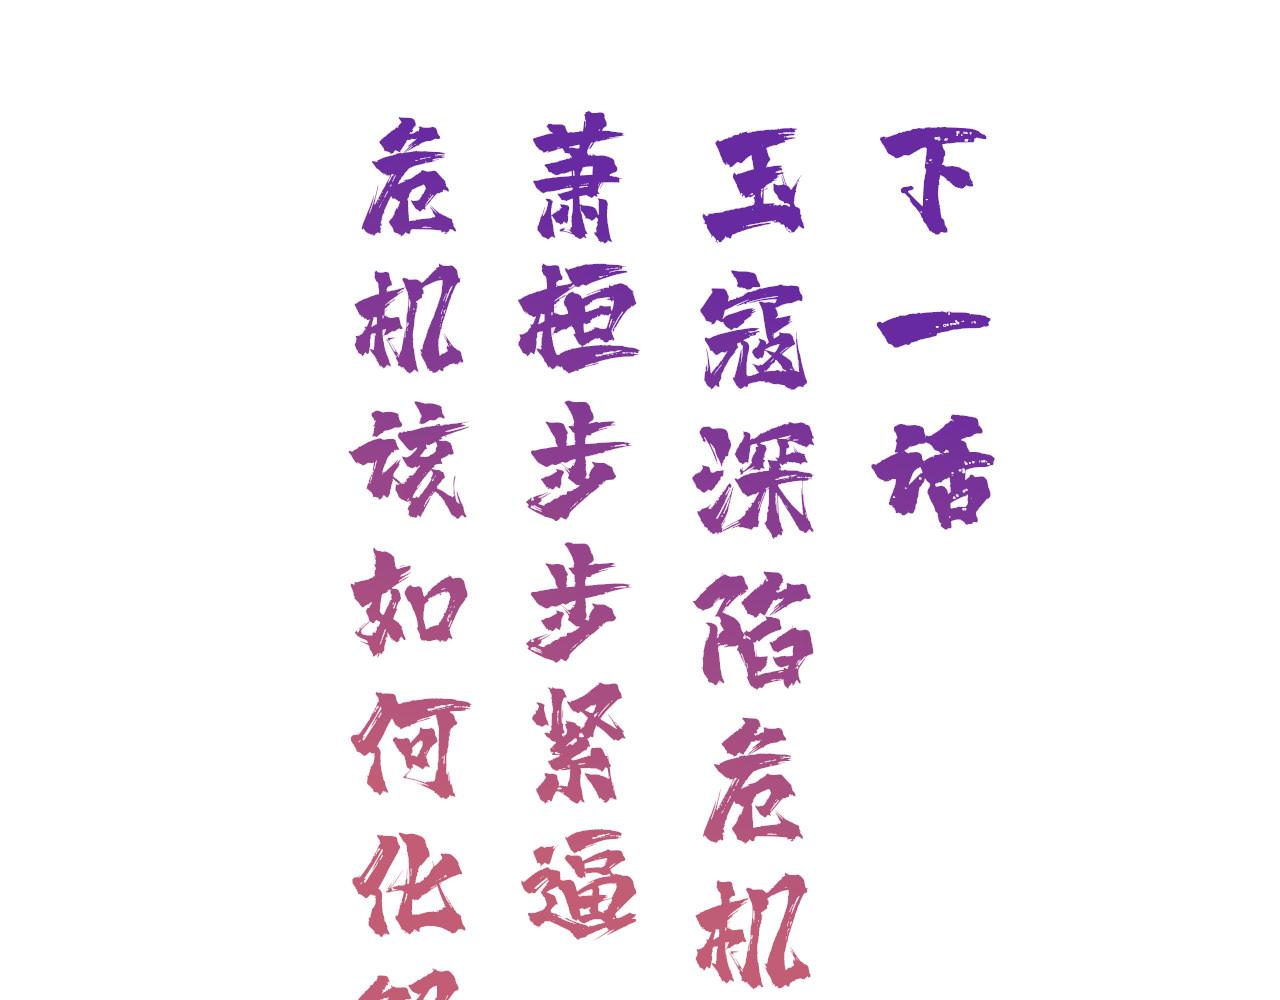 下一话
玉寇深陷危机
萧桓步步紧逼
危机该如何化